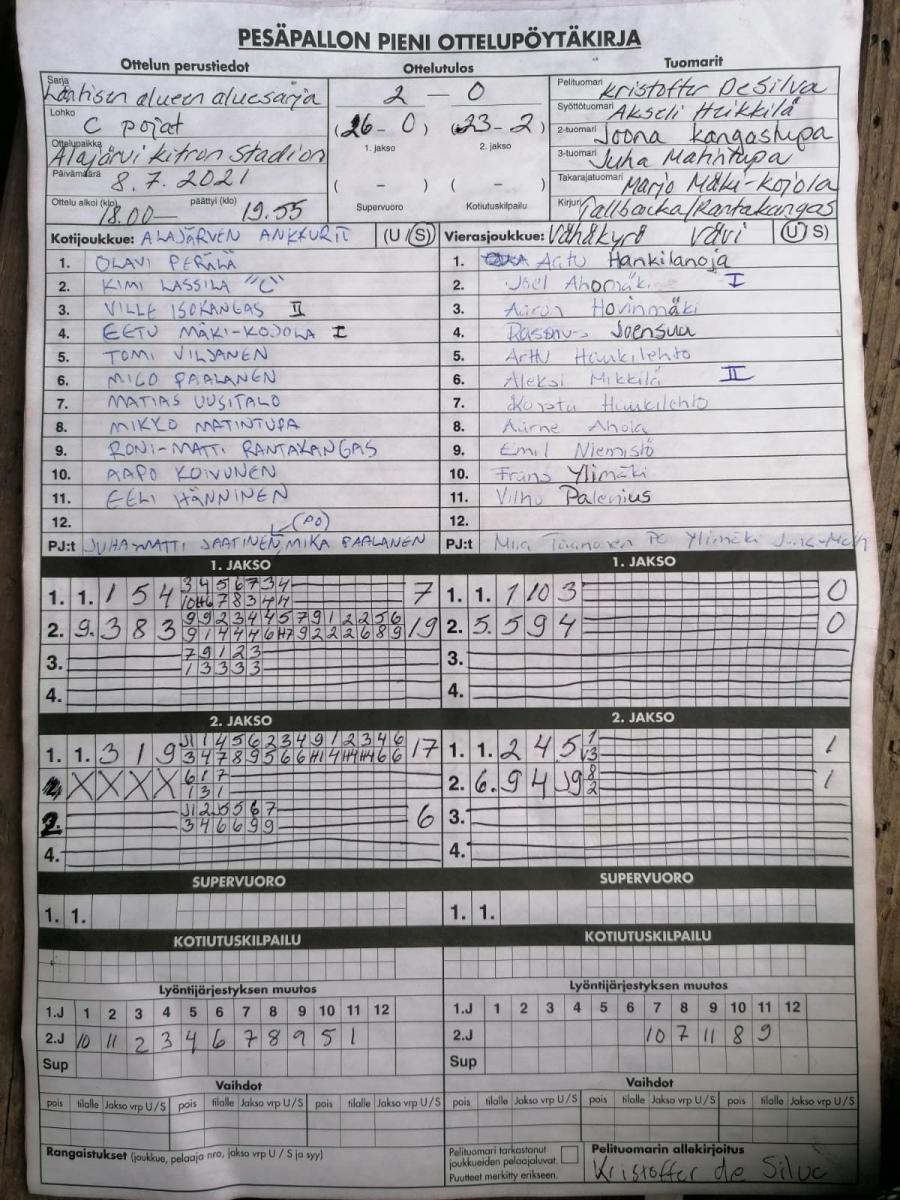 PESÄPALLON PIENI OTTELUPÖYTÄKIRJA
Ottelun perustiedot Ottelutulos Tuomarit
Sarja Läntisen alueen aluesarja
Lohko C pojat
Ottelupaikka Alajärvi kitron Stadion
Päivämäärä 8.7.2021
Ottelu alkoi (klo) 18.00— päättyi (klo) 19.55
2 – 0
(26 - 0) (23 - 2)
1. jakso 2. jakso
( - ) ( - )
Supervuoro Kotiutuskilpailu
Pelituomari Kristoffer DeSilva
Syöttötuomari Akseli Heikkilä
2-tuomari Joona Kangastupa
3-tuomari Juha Matintupa
Takarajatuomari Marjo Mäki-Kojola
Kirjuri Tallbacka/Rantakangas
Kotijoukkue: ALAJÄRVEN ANKKURIT (U / S)
1. OLAVI PERÄLÄ
2. KIMI LASSILA "C"
3. VILLE ISOKANGAS II
4. EETU MÄKI-KOJOLA I
5. TOMI VILJANEN
6. MILO PAALANEN
7. MATIAS UUSITALO
8. MIKKO MATINTUPA
9. RONI-MATTI RANTAKANGAS
10. AAPO KOIVUNEN
11. EELI HÄNNINEN
12.
(PO)
PJ:t JUHA-MATTI JAATINEN, MIKA PAALANEN
Vierasjoukkue: Vähäkyrö Vävi (U / S)
1. Arttu Hankilanoja
2. Joel Ahomäki I
3. Aaron Hovinmäki
4. Rasmus Joensuu
5. Arttu Haukilehto
6. Aleksi Mikkilä II
7. Haukilehto
8. Aarne Ahola
9. Emil Niemistö
10. Frans Ylimäki
11. Vilho Palenius
12.
PJ:t Ylimäki
1. JAKSO
1. 1. 1 5 4 3 4 5 6 7 3 4 7
2. 9. 3 8 3 9 9 2 3 4 4 5 7 9 1 2 2 5 6 19
9 1 4 4 4 6 H7 9 2 2 2 6 8 9
3. 7 9 1 2 3
1 3 3 3 3
4.
1. JAKSO
1. 1. 1 10 3 0
2. 5. 5 9 4 0
3.
4.
2. JAKSO
1. 1. 3 1 9 17
X X X X 6 1 7
1 3 1
2. 6
3 4 6 6 9 9
4.
2. JAKSO
1. 1. 2 4 5 1
2. 6. 9 4 1
3.
4.
SUPERVUORO
1. 1.
SUPERVUORO
1. 1.
KOTIUTUSKILPAILU
KOTIUTUSKILPAILU
Lyöntijärjestyksen muutos
1.J 1 2 3 4 5 6 7 8 9 10 11 12
2.J 10 11 2 3 4 6 7 8 9 5 1
Sup
Lyöntijärjestyksen muutos
1.J 1 2 3 4 5 6 7 8 9 10 11 12
2.J 10 7 11 8 9
Sup
Vaihdot
pois tilalle Jakso vrp U/S pois tilalle Jakso vrp U/S pois tilalle Jakso vrp U/S
Vaihdot
pois tilalle Jakso vrp U/S pois tilalle Jakso vrp U/S pois tilalle Jakso vrp U/S
Rangaistukset (joukkue, pelaaja nro, jakso vrp U / S ja syy)
Pelituomari tarkastanut
joukkueiden pelaajaluvat.
Puutteet merkitty erikseen.
Pelituomarin allekirjoitus
Kristoffer de Silva